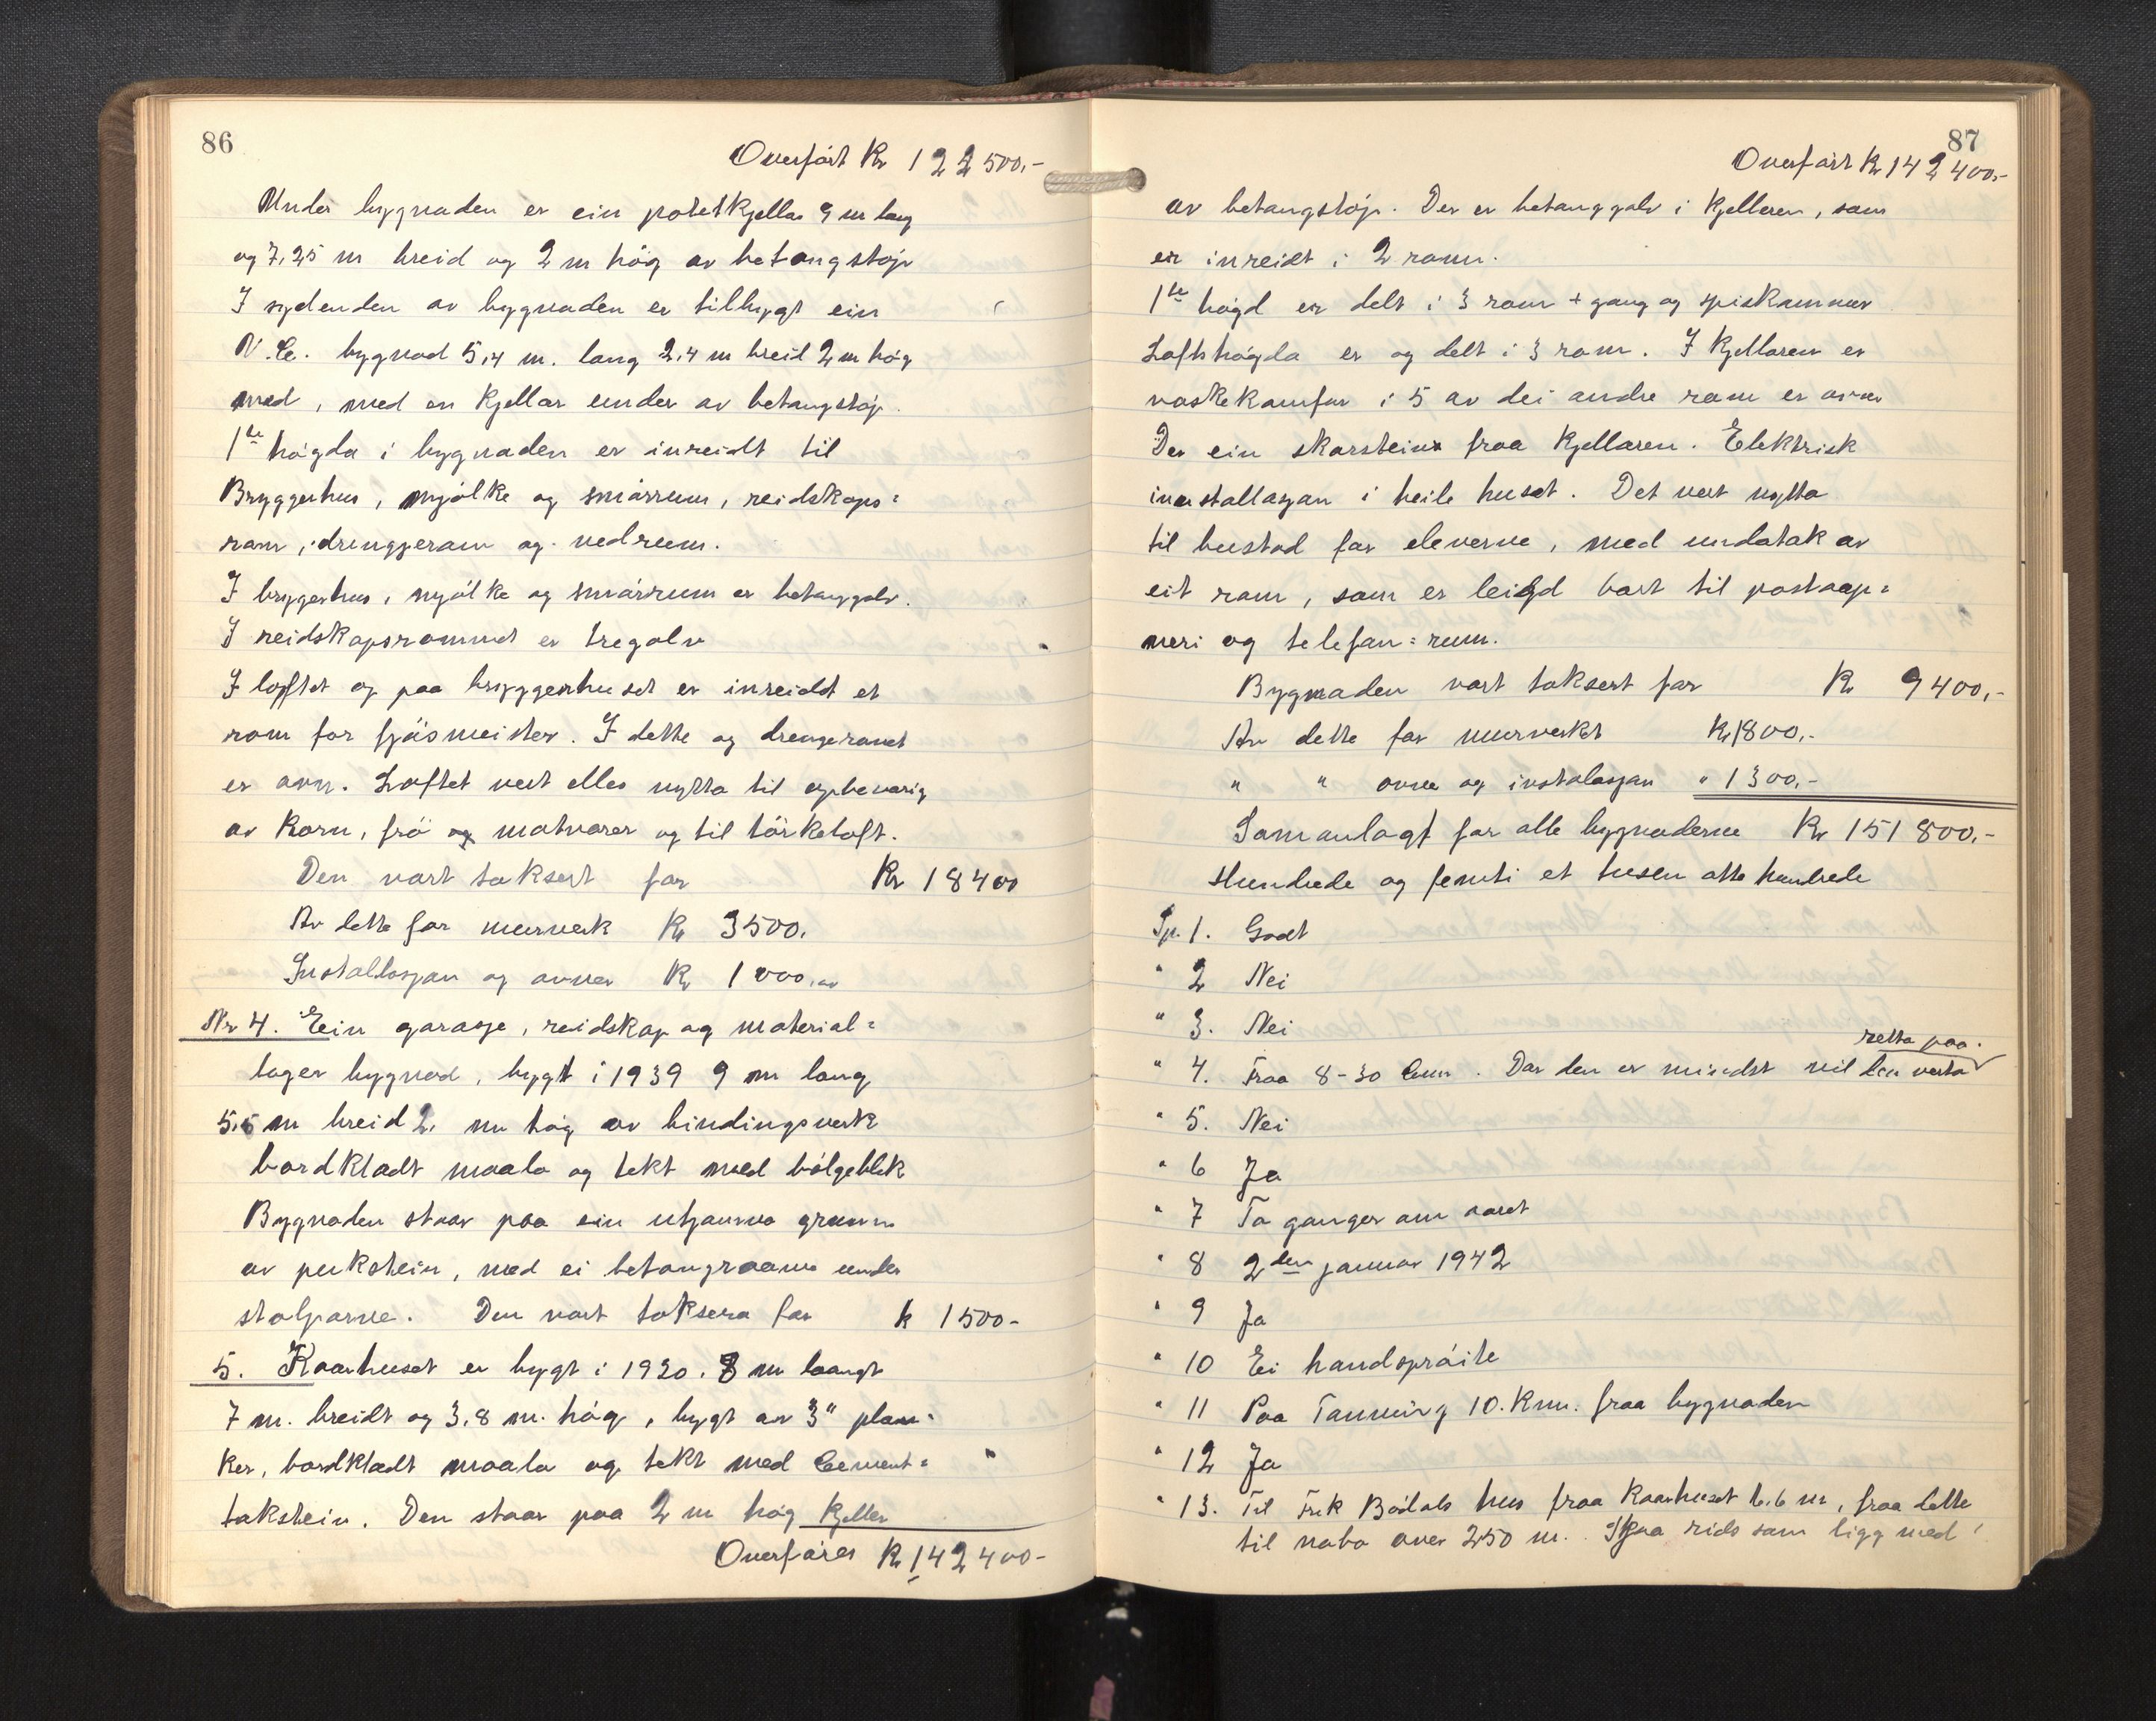 86
Overfört Kr 122500,-
Under bygnaden er ein potetkjellar 9 m lang
og 7,25 m breid og 2 m hög av betongstöp
I sydenden av bygnaden er tilbygt ein
V.C. bygnad 5,4 m. lang 2,4 m breid 2 m hög
med, med en Kjellar under av betongstöp.
1ste högda i bygnaden er inreidt til
Bryggerhus, mjölke og smörrum, reidskaps=
rom, drengjerom og vedrum.
I bryggerhus, mjölke og smörrum er betonggolv.
I reidskapsrommet er tregolv
I loftet og paa bryggerhuset er inreidd et
rom for fjösmeister. I dette og drengeromet
er ovn. Loftet vert elles nytta til opbevarig
av Korn, frö og matvarer og til törkeloft.
Den vart taksert for Kr 18400
Av dette for murverk Kr 3500.
Installasjon og ovner Kr 1000,00
Nr 4. Ein garasje, reidskap og material=
lager bygnad, bygt i 1939 9 m lang
5,5 m breid 2, m hög av bindingsverk
bordkladt maala og tekt med bölgeblek
Bygnaden staar paa ein utjamna grunn
av pukstein, med ei betongraame under
stolparne. Den vart taksera for k 1500-
5. Kaarhuset er bygt i 1920. 8 m laangt
7 m. breidt og 3,8 m. hög, bygt av 3" plan=
ker, bordkladt maala og tekt med Cement=
takstein. Den staar paa 2 m hög Kjeller
Overföres Kr 142400-
87
Overfört Kr 142400,-
av betongstöp. Der er betonggolv i Kjelleren, som
er inreidt i 2 romm.
1ste högd er delt i 3 rom + gang og spiskammer
Loftshögda er og delt i 3 rom. I Kjellaren er
vaskekomfur i 5 av dei andre rom er ovner
Der ein skorstein fraa Kjellaren. Elektrisk
installasjon i heile huset. Det vert nytta
til bustad for eleverne, med undatak av
eit rom, som er leigd bort til postaap=
neri og telefon=rum.
Bygnaden vart taksert for Kr 9400,-
Av dette for murverket Kr 1800,-
" " ovner og instalasjon " 1300,-
Samanlagt for alle bygnaderne Kr 151800,-
Hundrede og femti et tusen otte hundrede
Sp. 1. Godt
" 2 Nei
" 3. Nei
retta paa.
" 4. Fraa 8-30 Cm. Der den er mindst vil den verta
" 5. Nei
" 6 Ja
" 7 To ganger om aaret
" 8 2den januar 1942
" 9 Ja
" 10 Ei handspröite
" 11 Paa Tanning 10. Km. fraa bygnaden
" 12 Ja
" 13. Til Frk Bödals hus fraa Kaarhuset 6,6 m, fraa dette
til nabo over 250 m. Sjaa rids som ligg med!